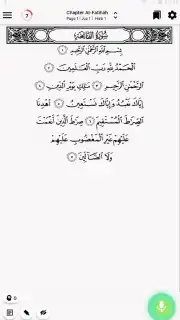 7
Chapter Al-Fatihah
Page 1 | Juz 1 | Hizb 1
سُورَةُ الْفَاتِحَةِ
بِسْمِ اللَّهِ الرَّحْمَٰنِ الرَّحِيمِ ١
الْحَمْدُ لِلَّهِ رَبِّ الْعَالَمِينَ ٢
الرَّحْمَٰنِ الرَّحِيمِ ٣ مَالِكِ يَوْمِ الدِّينِ ٤
إِيَّاكَ نَعْبُدُ وَإِيَّاكَ نَسْتَعِينُ ٥ اهْدِنَا
الصِّرَاطَ الْمُسْتَقِيمَ ٦ صِرَاطَ الَّذِينَ أَنْعَمْتَ
عَلَيْهِمْ غَيْرِ الْمَغْضُوبِ عَلَيْهِمْ
وَلَا الضَّالِّينَ ٧
0